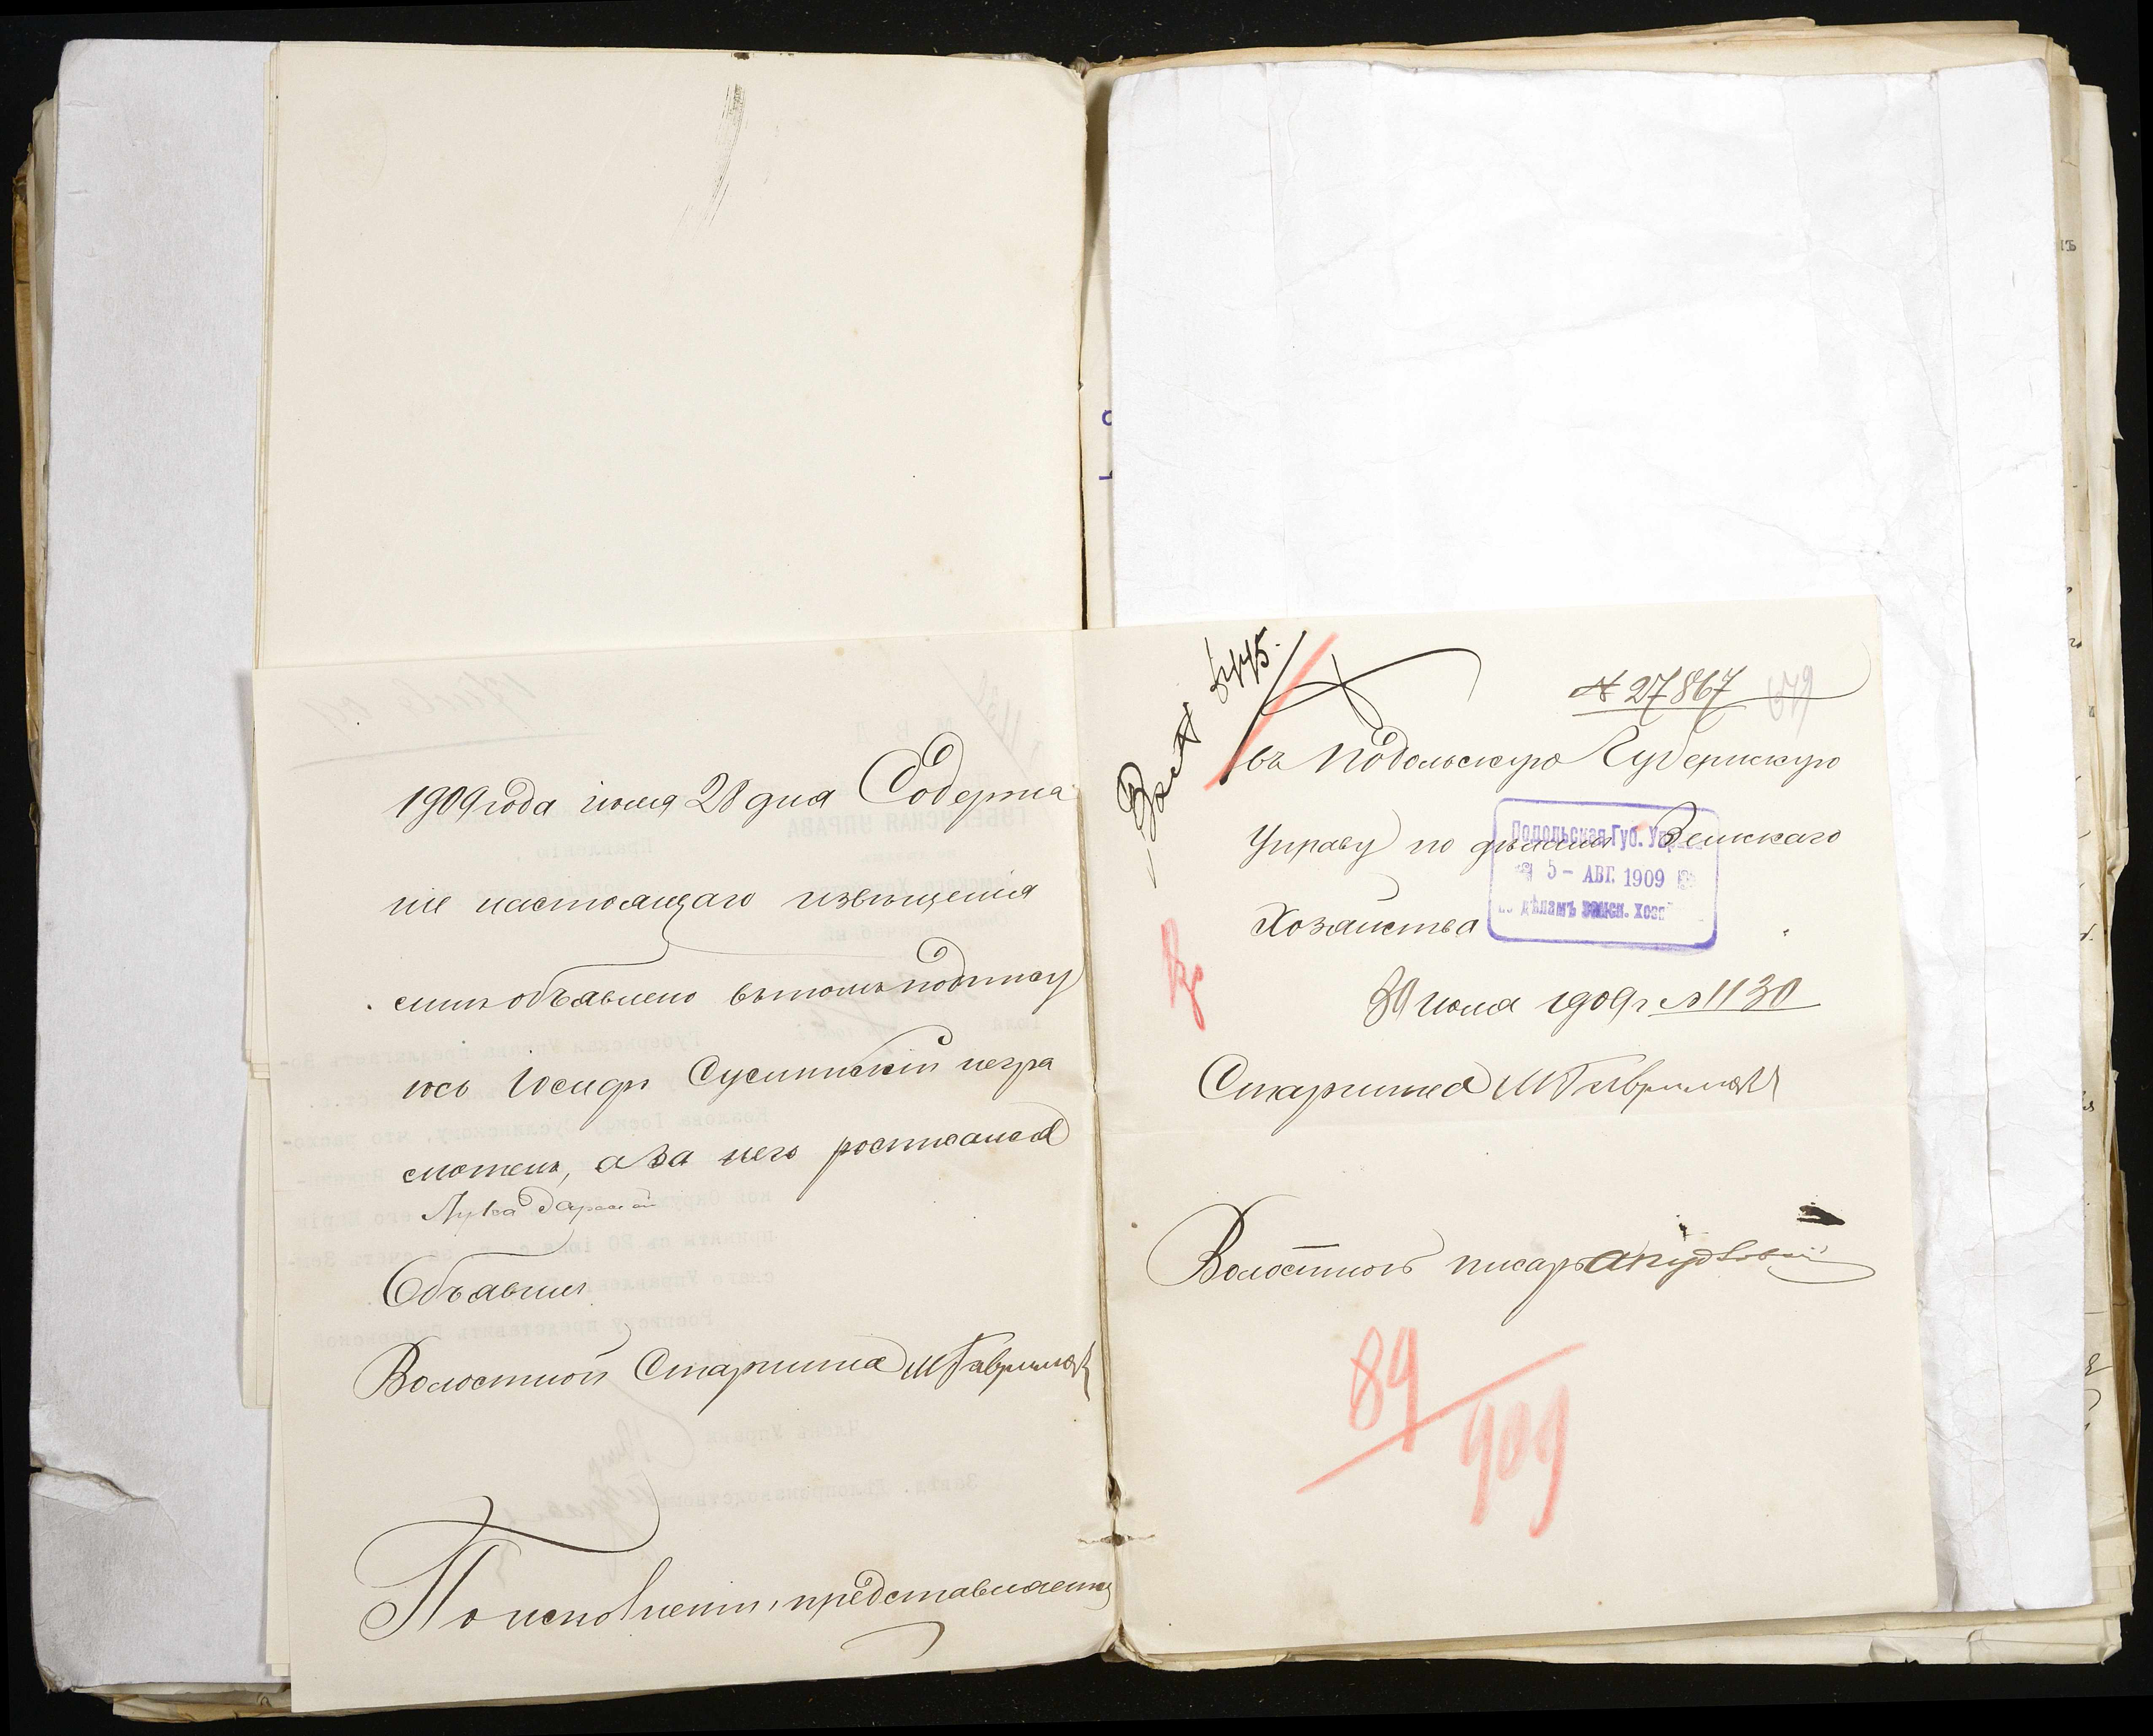 1909 года іюля 28 дня Содержа
ніе настоящаго извѣщенія
мнѣ объявлено въ томъ подпису
юсь Іосифъ Суслинскій негра
мотенъ, а за него росписался
Лука
Объявилъ
Волостной Старшина М Гаврилюкъ
По исполненіи, представляется
№ 27867
679
въ Подольскую Губернскую
Управу по дѣламъ Земскаго
Хозяйства
Подольская Губ. Управа
5 - АВГ. 1909
по дѣламъ земск. хоз.
30 іюля 1909 г №1130
Старшина М Гаврилюкъ
Волостной писарь
89
909